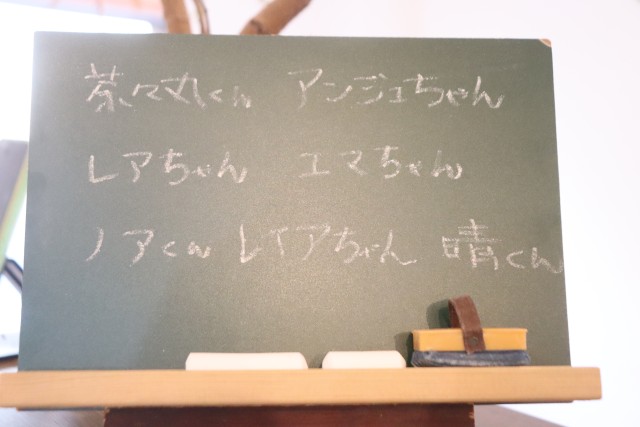 茶々丸くん アンジュちゃん
レアちゃん ユマちゃん
ノアくん レイアちゃん 晴くん